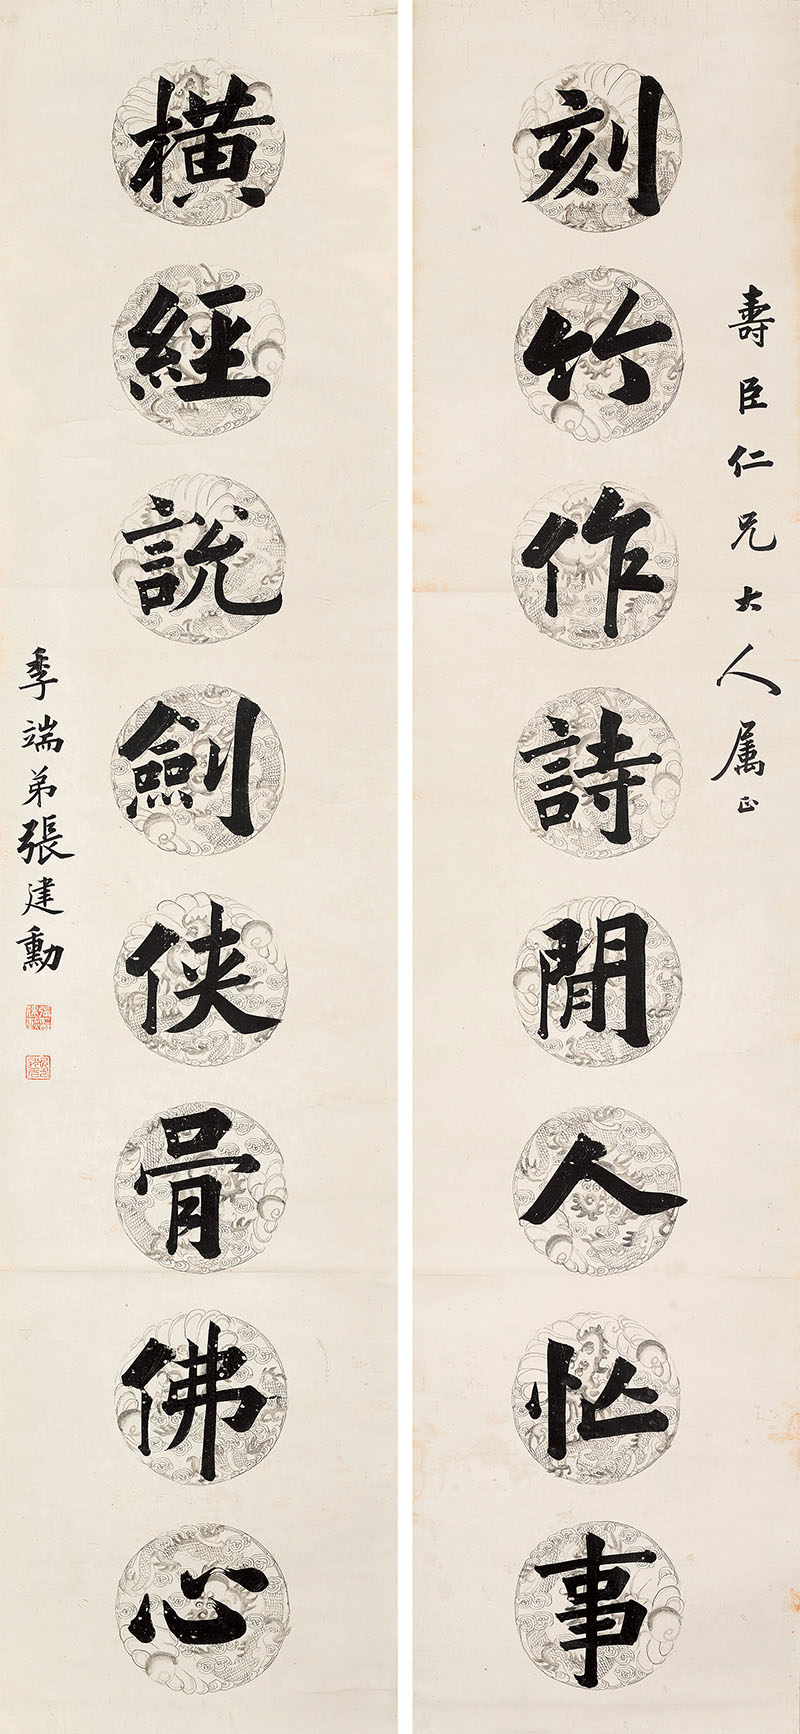 壽臣仁兄大人属正
刻竹作詩閒人忙事
橫經說劍俠骨佛心
季端弟張建勳